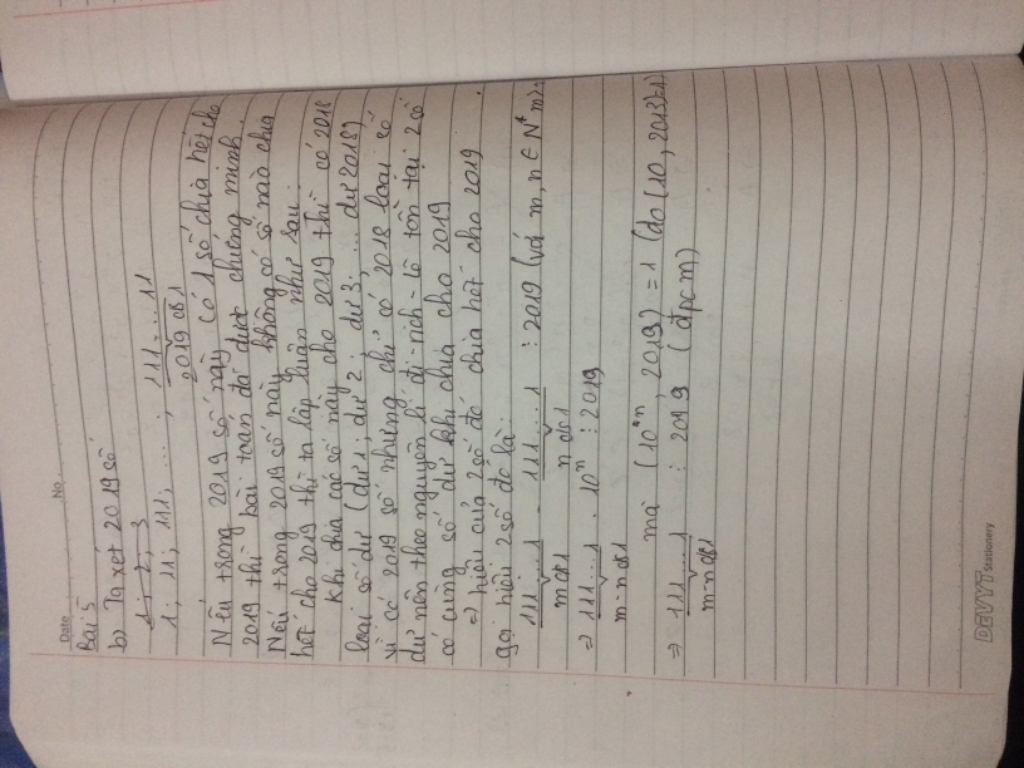 Date No
Bài 5
b) Ta xét 2019 số
1; 2; 3
1; 11; 111; ... ; 111....11
2019 cs1
Nếu trong 2019 số này có 1 số chia hết cho
2019 thì bài toán đã được chứng minh.
Nếu trong 2019 số này không có số nào chia
hết cho 2019 thì ta lập luận như sau.
Khi chia các số này cho 2019 thì có 2018
loại số dư (dư 1; dư 2; dư 3; ... dư 2018)
Vì có 2019 số nhưng chỉ có 2018 loại số
dư nên theo nguyên lí đi-rich-lê tồn tại 2 số
có cùng số dư khi chia cho 2019
=> hiệu của 2 số đó chia hết cho 2019
gọi hiệu 2 số đó là:
111...1 - 111...1 ⋮ 2019 (với m, n ∈ N* m>
m cs1 n cs1
=> 111...1 . 10ⁿ ⋮ 2019
m-n cs1
mà (10ⁿ, 2019) = 1 (do (10, 2019)=1)
=> 111...1 ⋮ 2019 (đpcm)
m-n cs1
DEVYT Stationery